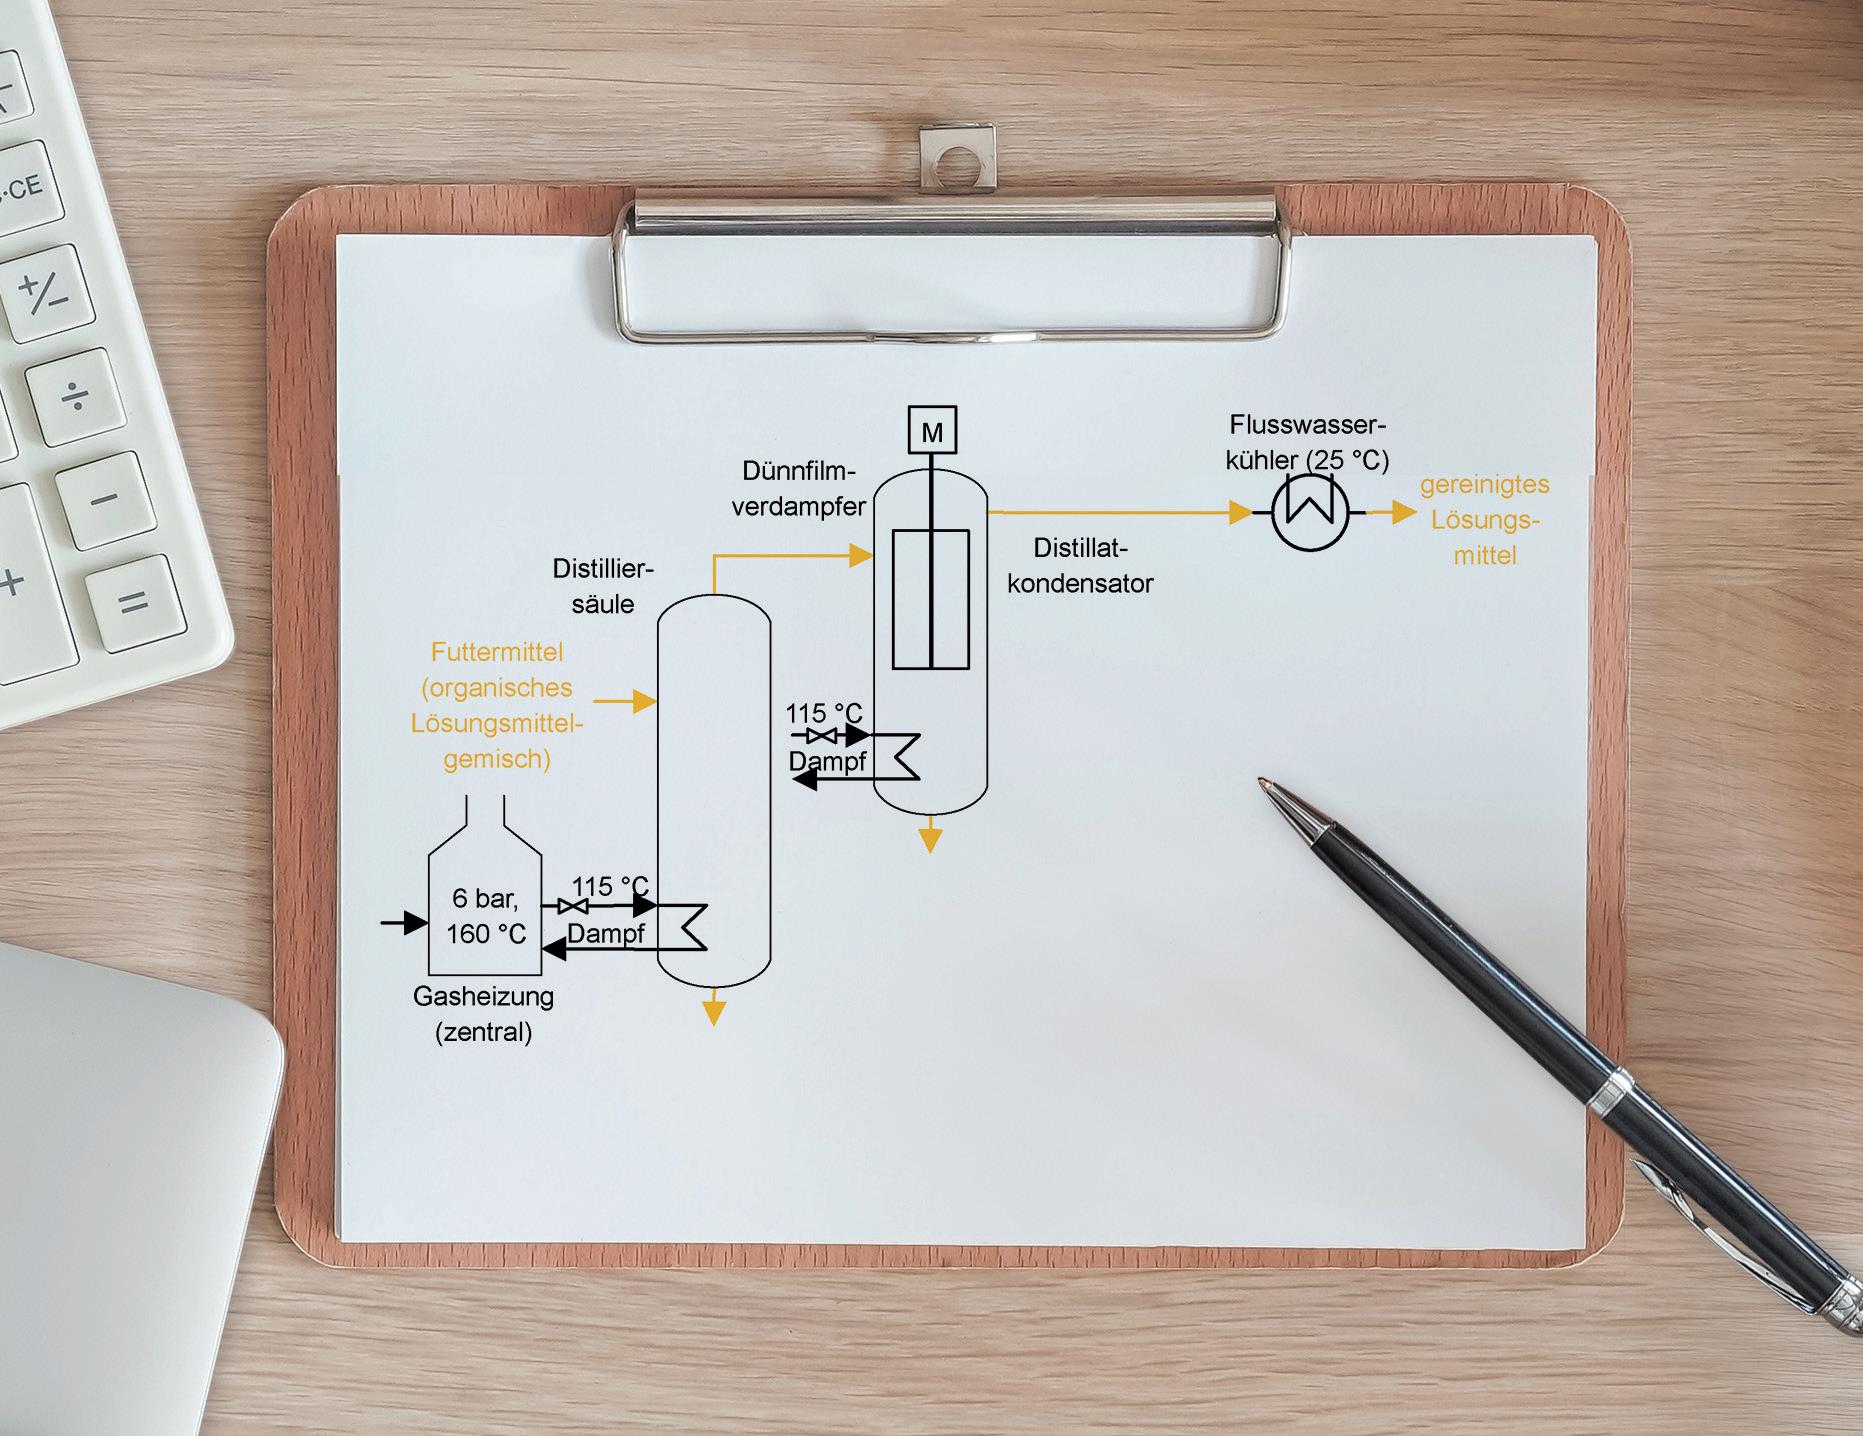 CE
+/−
÷
−
+
=
M
Flusswasser-
kühler (25 °C)
gereinigtes
Lösungs-
mittel
Dünnfilm-
verdampfer
Distillat-
kondensator
Distillier-
säule
Futtermittel
(organisches
Lösungsmittel-
gemisch)
115 °C
Dampf
6 bar,
160 °C
115 °C
Dampf
Gasheizung
(zentral)